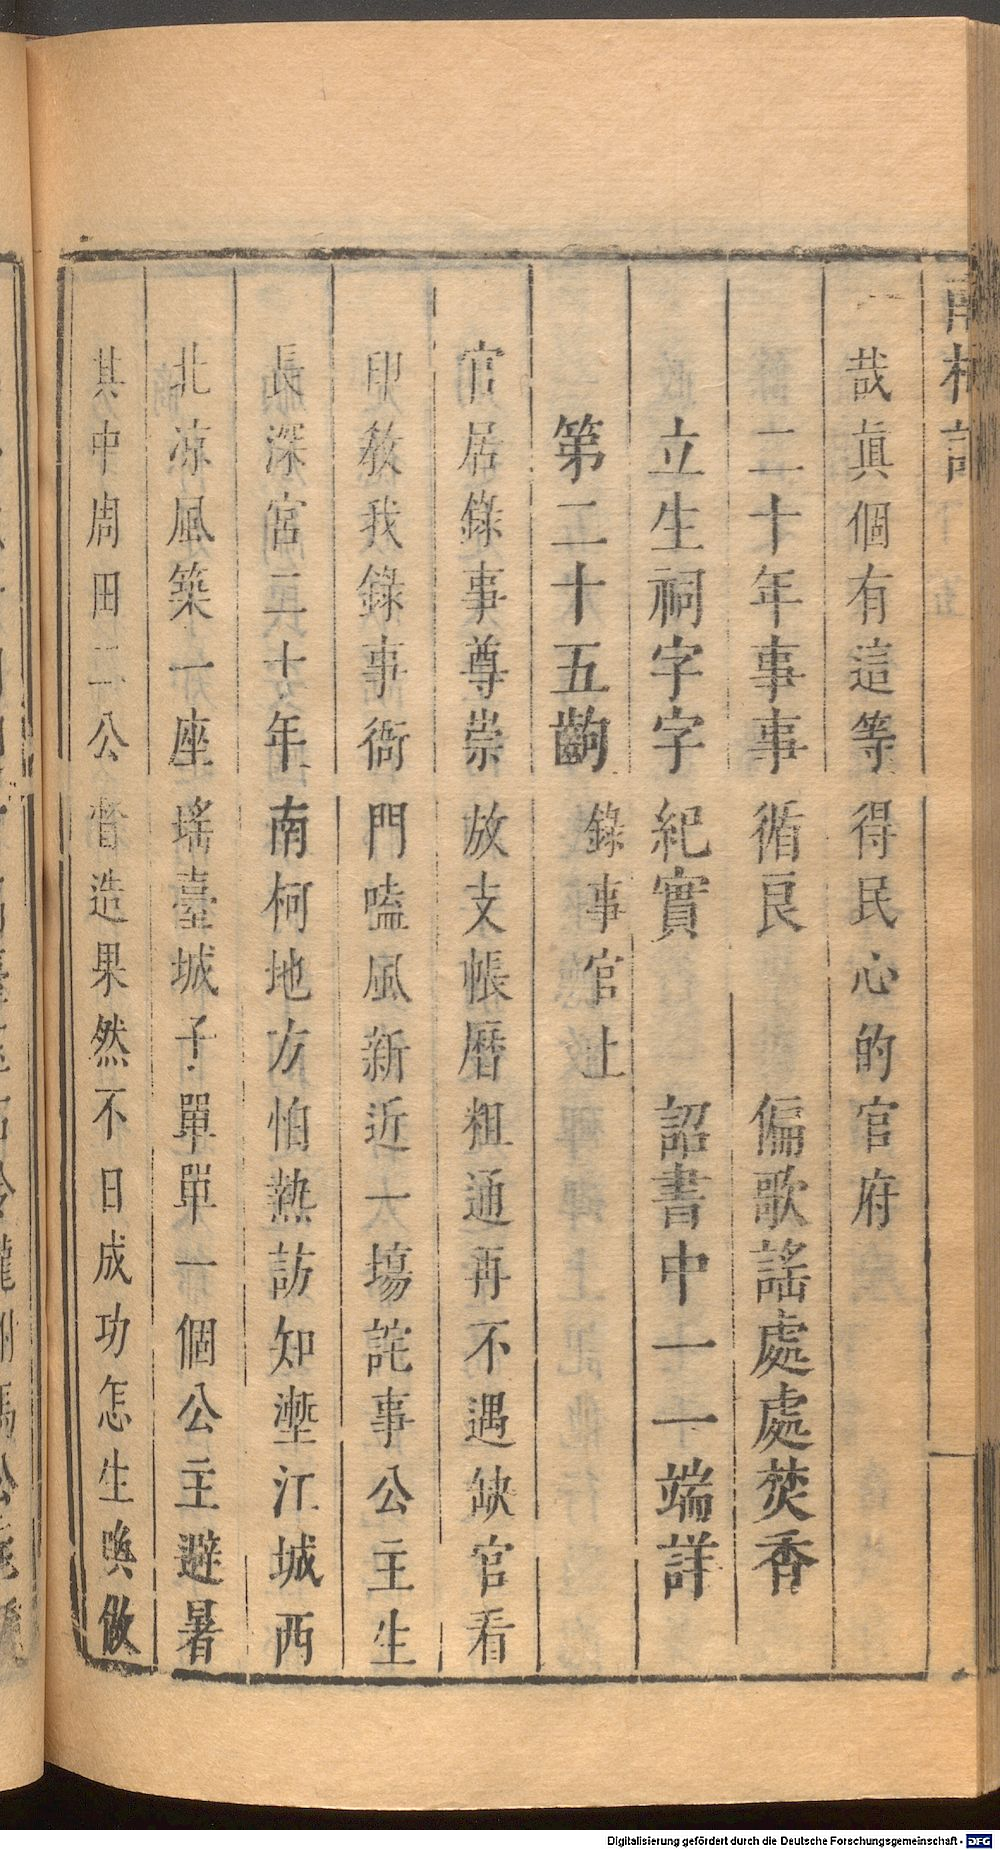 南柯記
哉眞個有這等得民心的官府
二十年事事循良　偏歌謠處處焚香
立生祠字字紀實　詔書中一一端詳
第二十五齣　錄事官上
官居錄事尊崇放支帳曆粗通再不遇缺官看
印敎我錄事衙門嗑風新近一塲詫事公主生
長深宮二十年南柯地方怕熱訪知壍江城西
北凉風築一座瑤臺城子單單一個公主避暑
其中周田二公督造果然不日成功怎生喚做
Digitalisierung gefördert durch die Deutsche Forschungsgemeinschaft - DFG